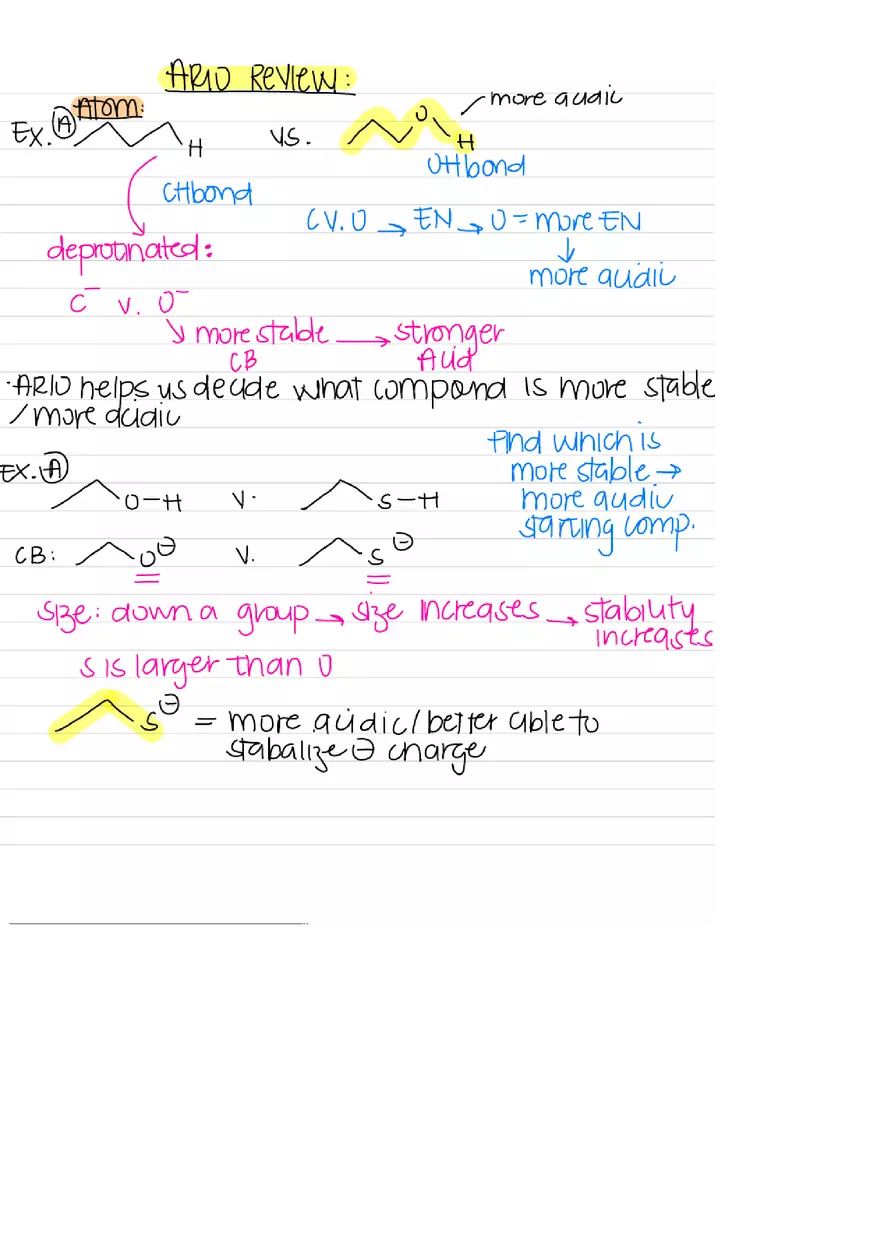 ARIO REVIEW:
Atom:
more acidic
EX. A H vs. O H
OH bond
CH bond
C v. O → EN → O = more EN
deprotinated:
↓
more acidic
C⁻ v. O⁻
↘ more stable → stronger
CB Acid
·ARIO helps us decide what compound is more stable
/more acidic
find which is
EX. A more stable →
O-H v. S-H more acidic
starting comp.
CB: O⊖ v. S⊖
size: down a group → size increases → stability
increases
S is larger than O
S⊖ = more acidic/better able to
stabalize ⊖ charge